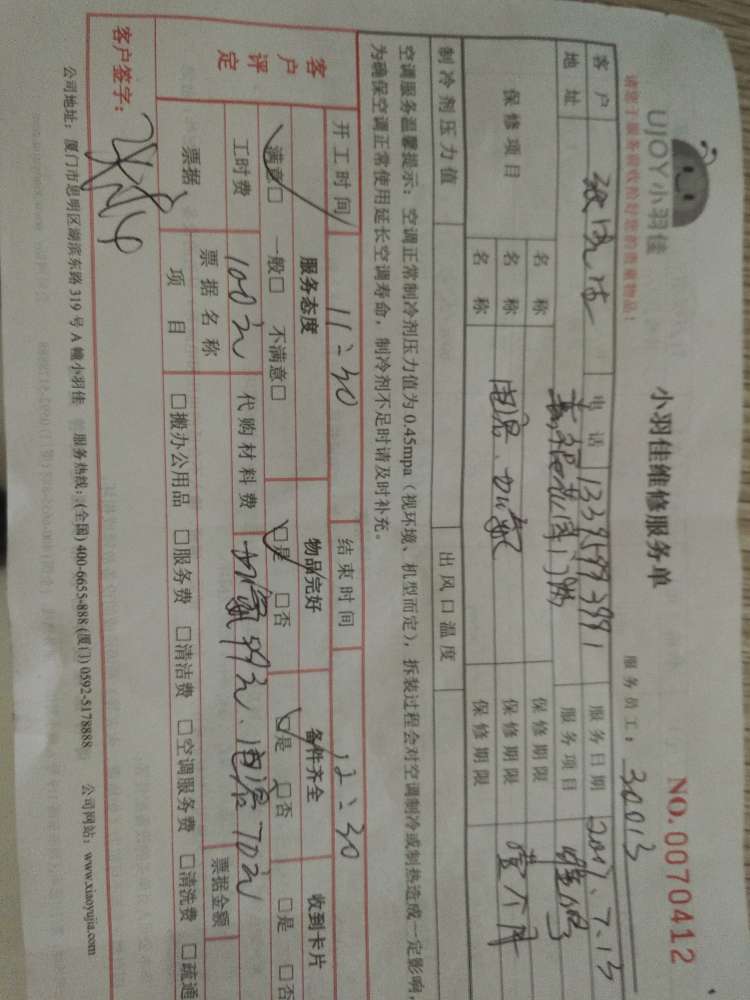 UJOY小羽佳
小羽佳维修服务单
NO.0070412
请您于服务前收拾好您的贵重物品:
服务员工: 30013
客户 电话 13395993991 服务日期 2017.7.13
地址 服务项目
保修项目 名称 保修期限
名称 电容.加氟 保修期限 壹个月
名称 保修期限
制冷剂压力值 出风口温度
空调服务温馨提示: 空调正常制冷剂压力值为0.45mpa (视环境、机型而定), 拆装过程会对空调制冷或制热造成一定影响,
为确保空调正常使用延长空调寿命, 制冷剂不足时请及时补充。
开工时间 11:30 结束时间 12:30
客户评定 服务态度 物品完好 备件齐全 收到卡片
满意□ 一般□ 不满意□ □是 □否 □是 □否 □是 □否
工时费 100元 代购材料费 加氟99元、电容70元
票据 票据名称 票据金额
项目 □搬办公用品 □服务费 □清洁费 □空调服务费 □清洗费 □疏通
客户签字:
公司地址: 厦门市思明区湖滨东路319号A幢小羽佳 服务热线: (全国) 400-6655-888 (厦门) 0592-5178888 公司网站: www.xiaoyujia.com